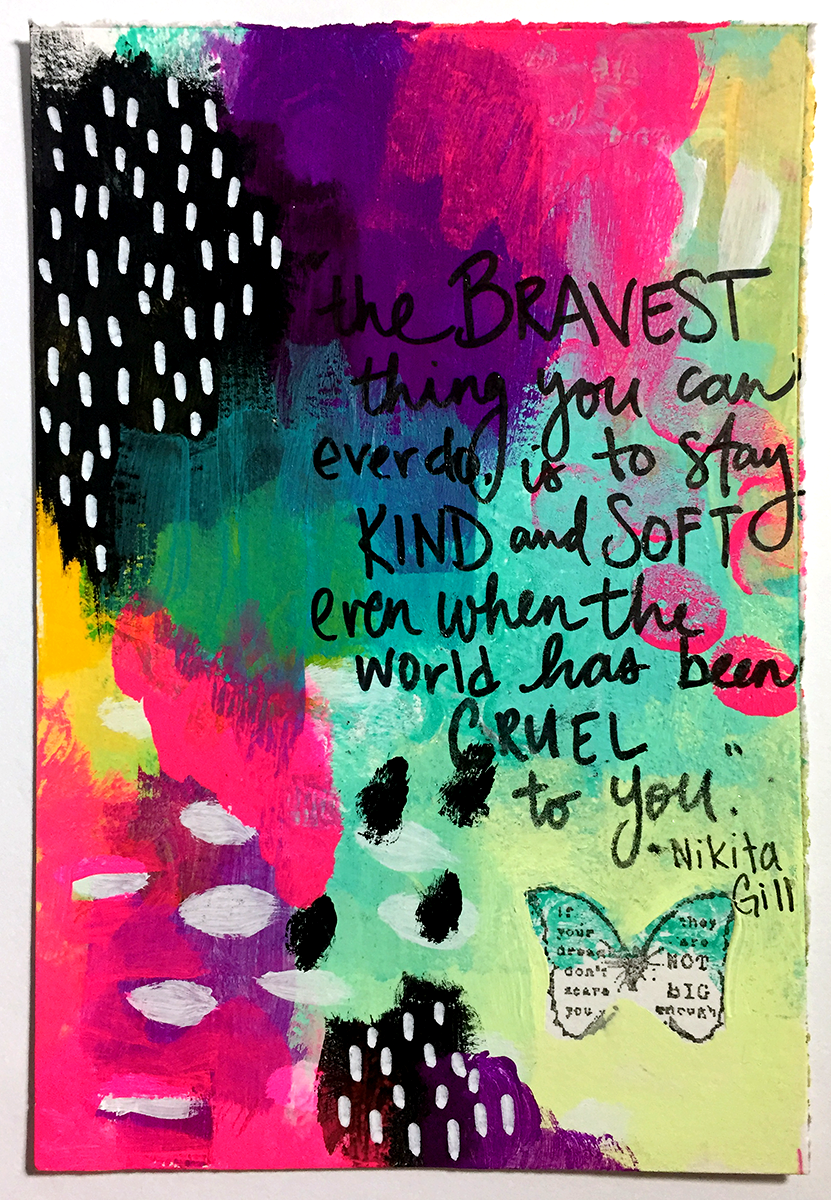 "the BRAVEST
thing you can
ever do, is to stay
KIND and SOFT
even when the
world has been
CRUEL
to you."
• Nikita
Gill
if
your
dreams
don't
scare
you,
they
are
NOT
BIG
enough